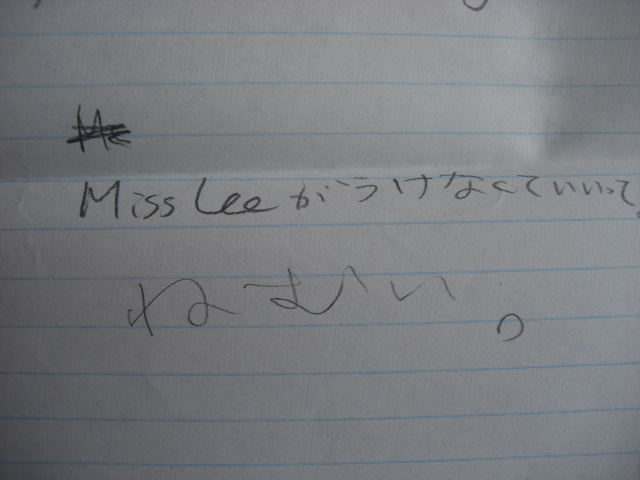 Miss Leeがうけなくていいって。
ねむい。